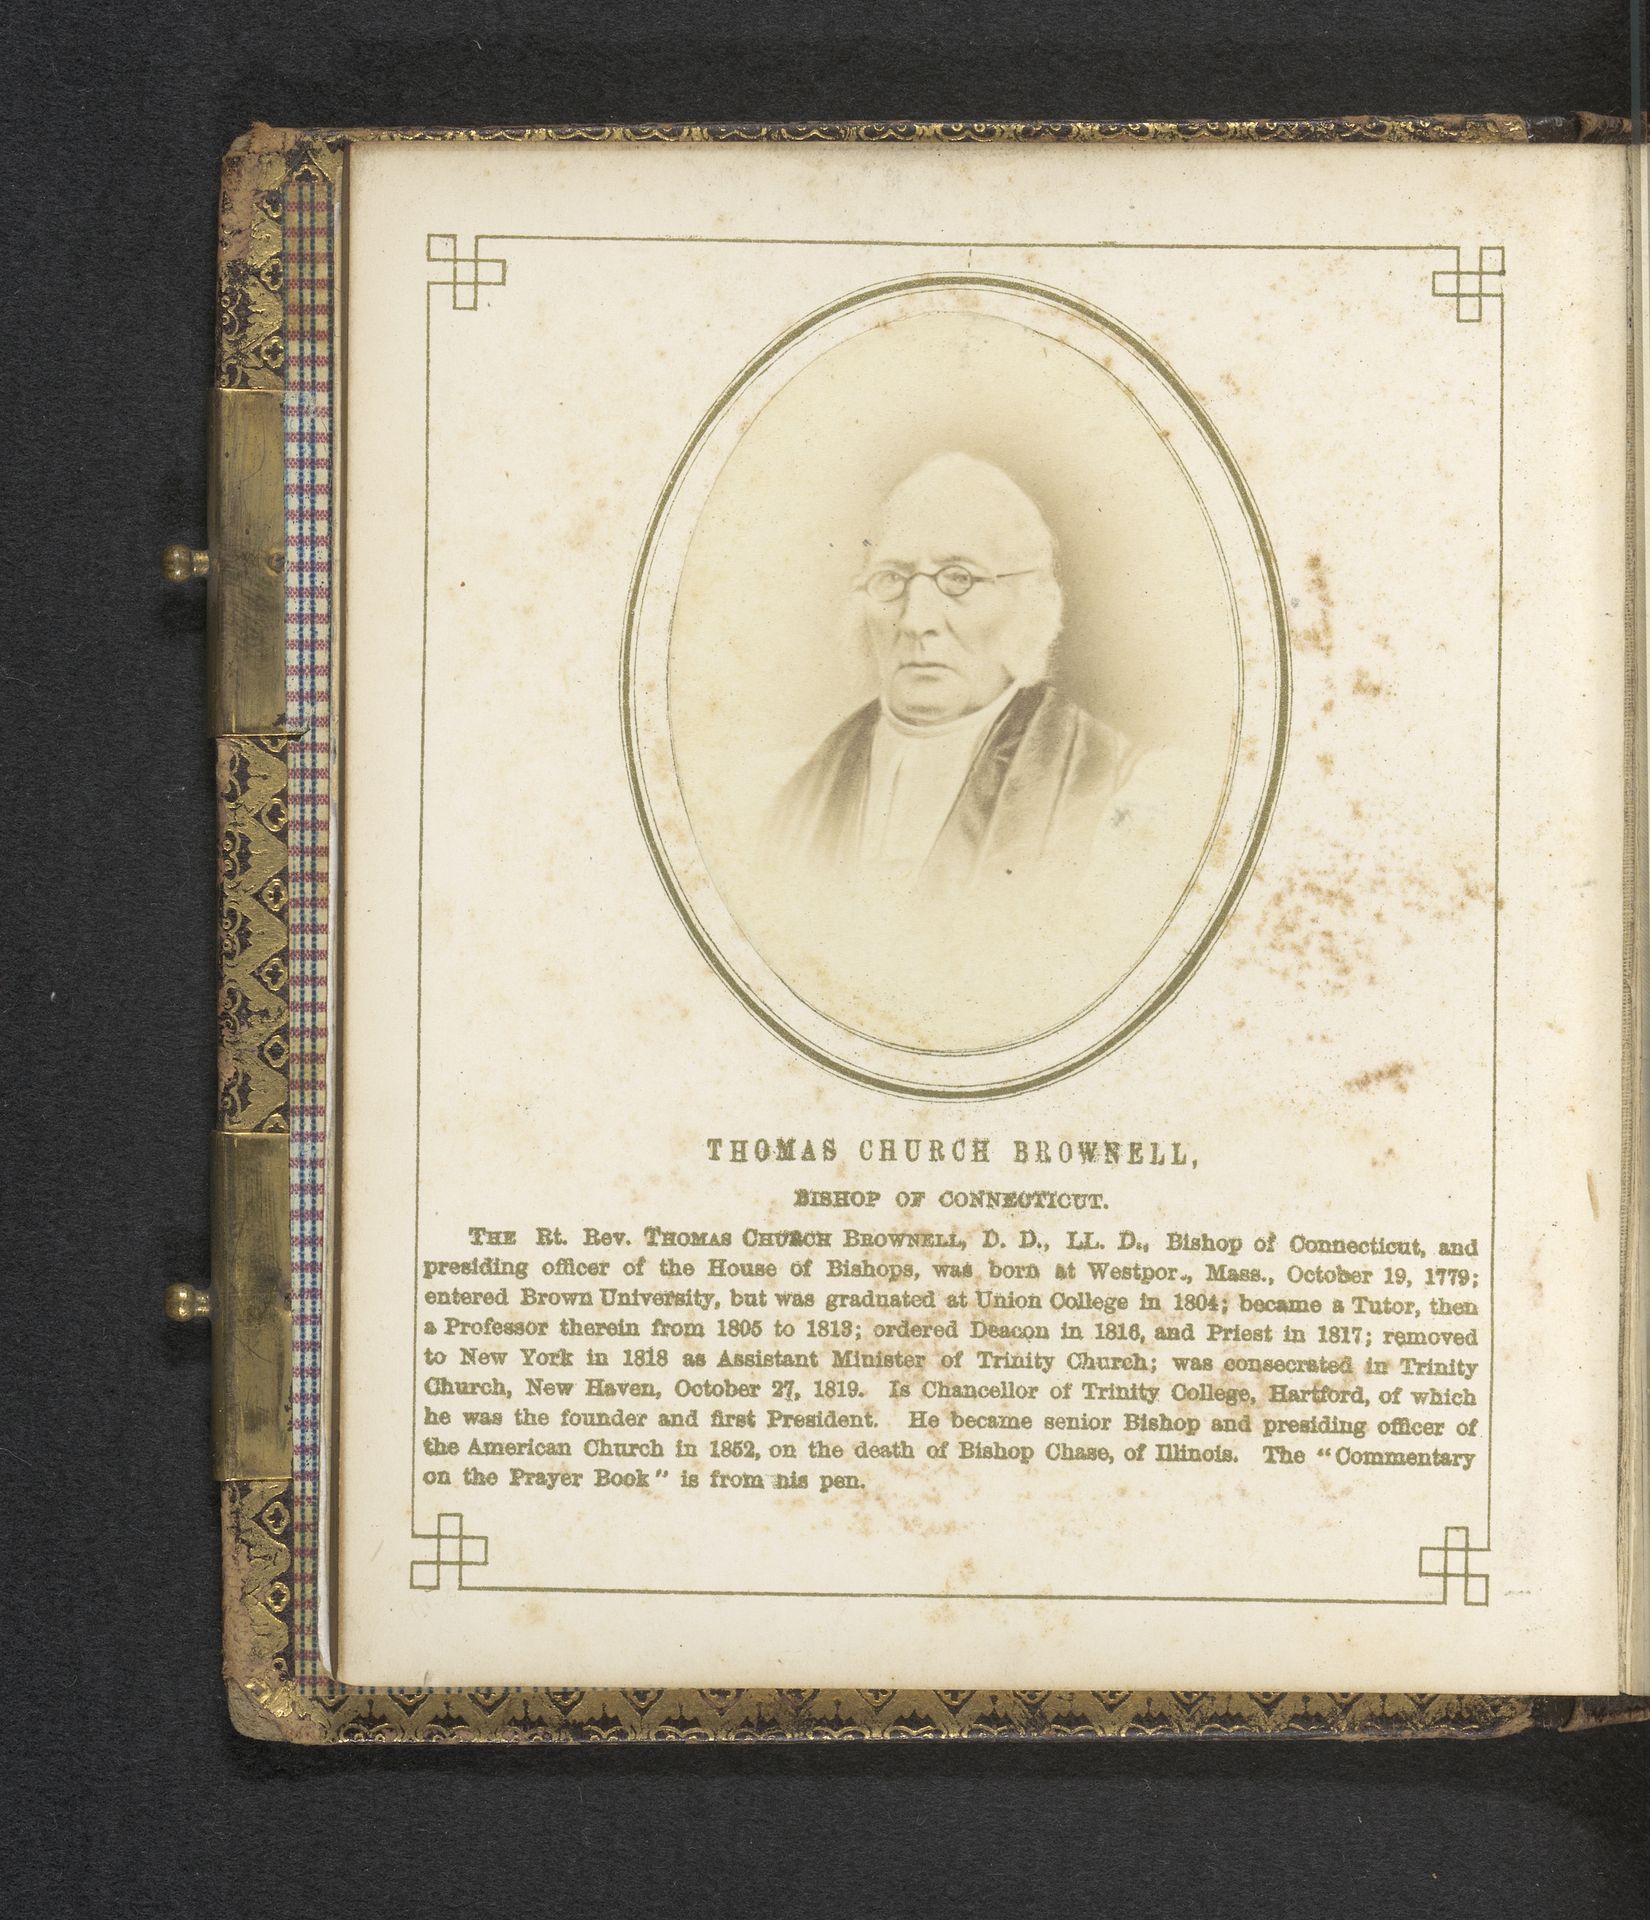 THOMAS CHURCH BROWNELL,
BISHOP OF CONNECTICUT.
THE Rt. Rev. THOMAS CHURCH BROWNELL, D. D., LL. D., Bishop of Connecticut, and
presiding officer of the House of Bishops, was born at Westpor., Mass., October 19, 1779;
entered Brown University, but was graduated at Union College in 1804; became a Tutor, then
a Professor therein from 1805 to 1813; ordered Deacon in 1816, and Priest in 1817; removed
to New York in 1818 as Assistant Minister of Trinity Church; was consecrated in Trinity
Church, New Haven, October 27, 1819. Is Chancellor of Trinity College, Hartford, of which
he was the founder and first President. He became senior Bishop and presiding officer of
the American Church in 1852, on the death of Bishop Chase, of Illinois. The "Commentary
on the Prayer Book" is from his pen.